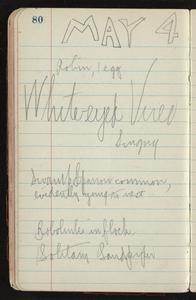 80
MAY 4
Robin, 1 egg
White-eyed Vireo
Singing
Swamp Sparrow common,
evidently trying to nest
Bobolinks in flock
Solitary Sandpiper